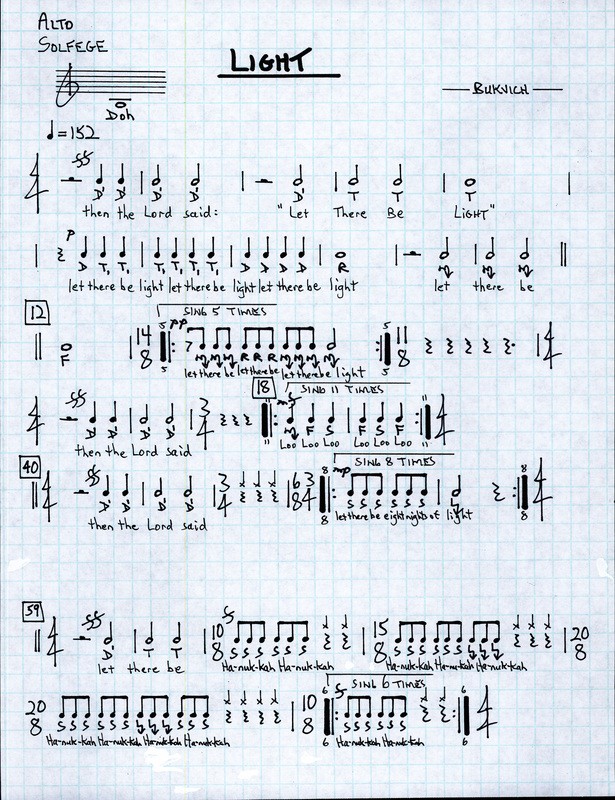 ALTO
SOLFEGE
LIGHT
BUKVICH
Doh
♩=152
4 4 ff D' D' D' D' D' T T T
then the Lord said: "Let There Be LIGHT"
p D T, T, T, T, T, T, D D D D R M M M
let there be light let there be light let there be light let there be
12 SING 5 TIMES
F 14 8 5 5 pp 7 M M M R R R M M M M 5 5 11 8 4 4
let there be let there be let there be light
18 SING 11 TIMES
ff D' D' D' D' 3 4 11 11 mf M F S F S F 11 11 4 4
then the Lord said Loo Loo Loo Loo Loo Loo
40 SING 8 TIMES
4 4 ff D' D' D' D' 3 4 6 8 3 4 8 8 mp S S S S S S 8 8 4 4
then the Lord said let there be eight nights of light
59
4 4 ff D' T T 10 8 ff S S S S S S 15 8 S S S S S S 20 8
let there be Ha-nuk-kah Ha-nuk-kah Ha-nuk-kah Ha-nuk-kah Ha-nuk-kah
SING 6 TIMES
20 8 S S S S S S S S S 10 8 6 6 ff S S S S S S 6 6 4 4
Ha-nuk-kah Ha-nuk-kah Ha-nuk-kah Ha-nuk-kah Ha-nuk-kah Ha-nuk-kah